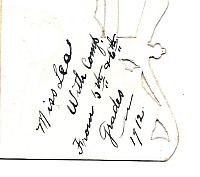 Miss Lea
With Comp.
From 5th & 6th
Grades
1912.